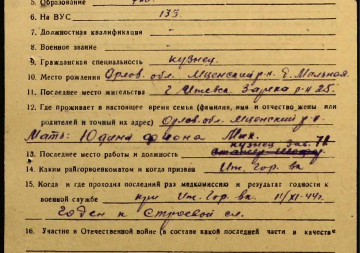 5. Образование
6. На ВУС 133
7. Должностная квалификация -
8. Военное звание -
9. Гражданская специальность кузнец
10. Место рождения Орлов. обл. Мценский р-н д.
11. Последнее место жительства г. Ижевск Зарека 25.
12. Где проживает в настоящее время семья (фамилия, имя и отчество жены или
родителей и точный их адрес) Орлов. обл. Мценский р-н
Мать: Юдина Мих.
кузнец зав. 71
13. Последнее место работы и должность
14. Каким райгорвоенкоматом и когда призван Иж. Гор. вк
15. Когда и где проходил последний раз медкомиссию и результат годности к
военной службе при Иж. Гор. вк 11/XI-44г.
Годен к Строевой сл.
16. Участие в Отечественной войне (в составе какой последней части и качестве